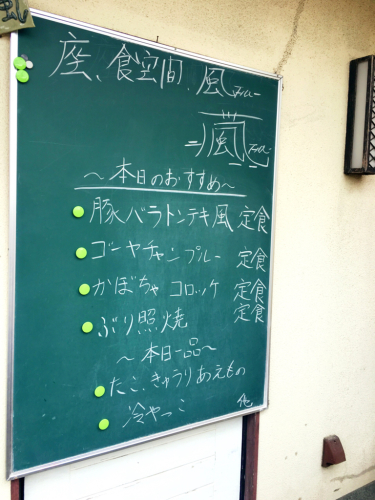 座、食空間、風
風
～本日のおすすめ～
豚バラトンテキ風 定食
ゴーヤチャンプルー 定食
かぼちゃ コロッケ 定食
ぶり照焼 定食
～本日一品～
たこ、きゅうりあえもの
冷やっこ 他